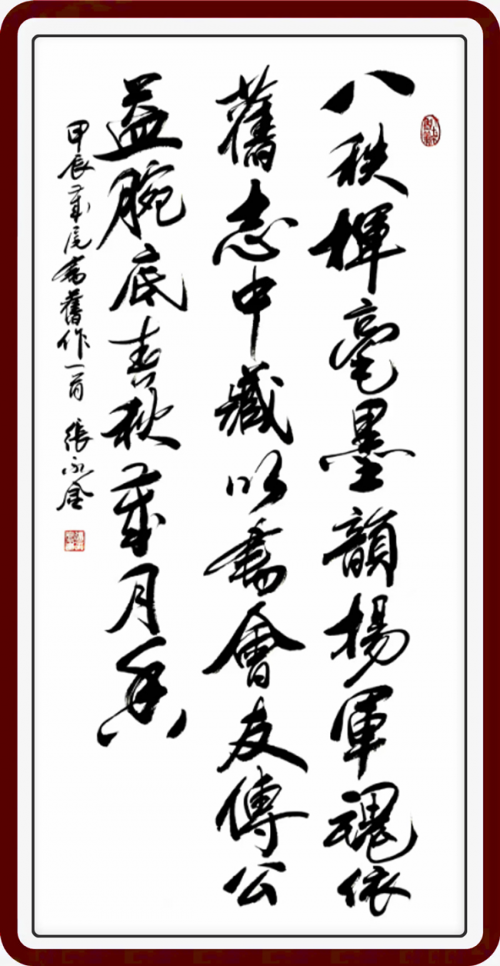 八秩揮毫墨韻揚軍魂依
舊志中藏以書會友傳公
益腕底春秋歲月香
甲辰歲元書舊作一首 張永金